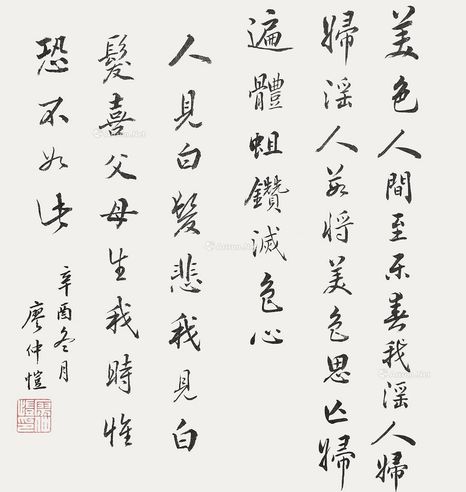 美色人間至乐春我淫人婦
婦淫人若將美色思亡婦
遍體蛆鑽滅色心
人見白髮悲我見白
髮喜父母生我時惟
恐不如此
辛酉冬月
廖仲愷